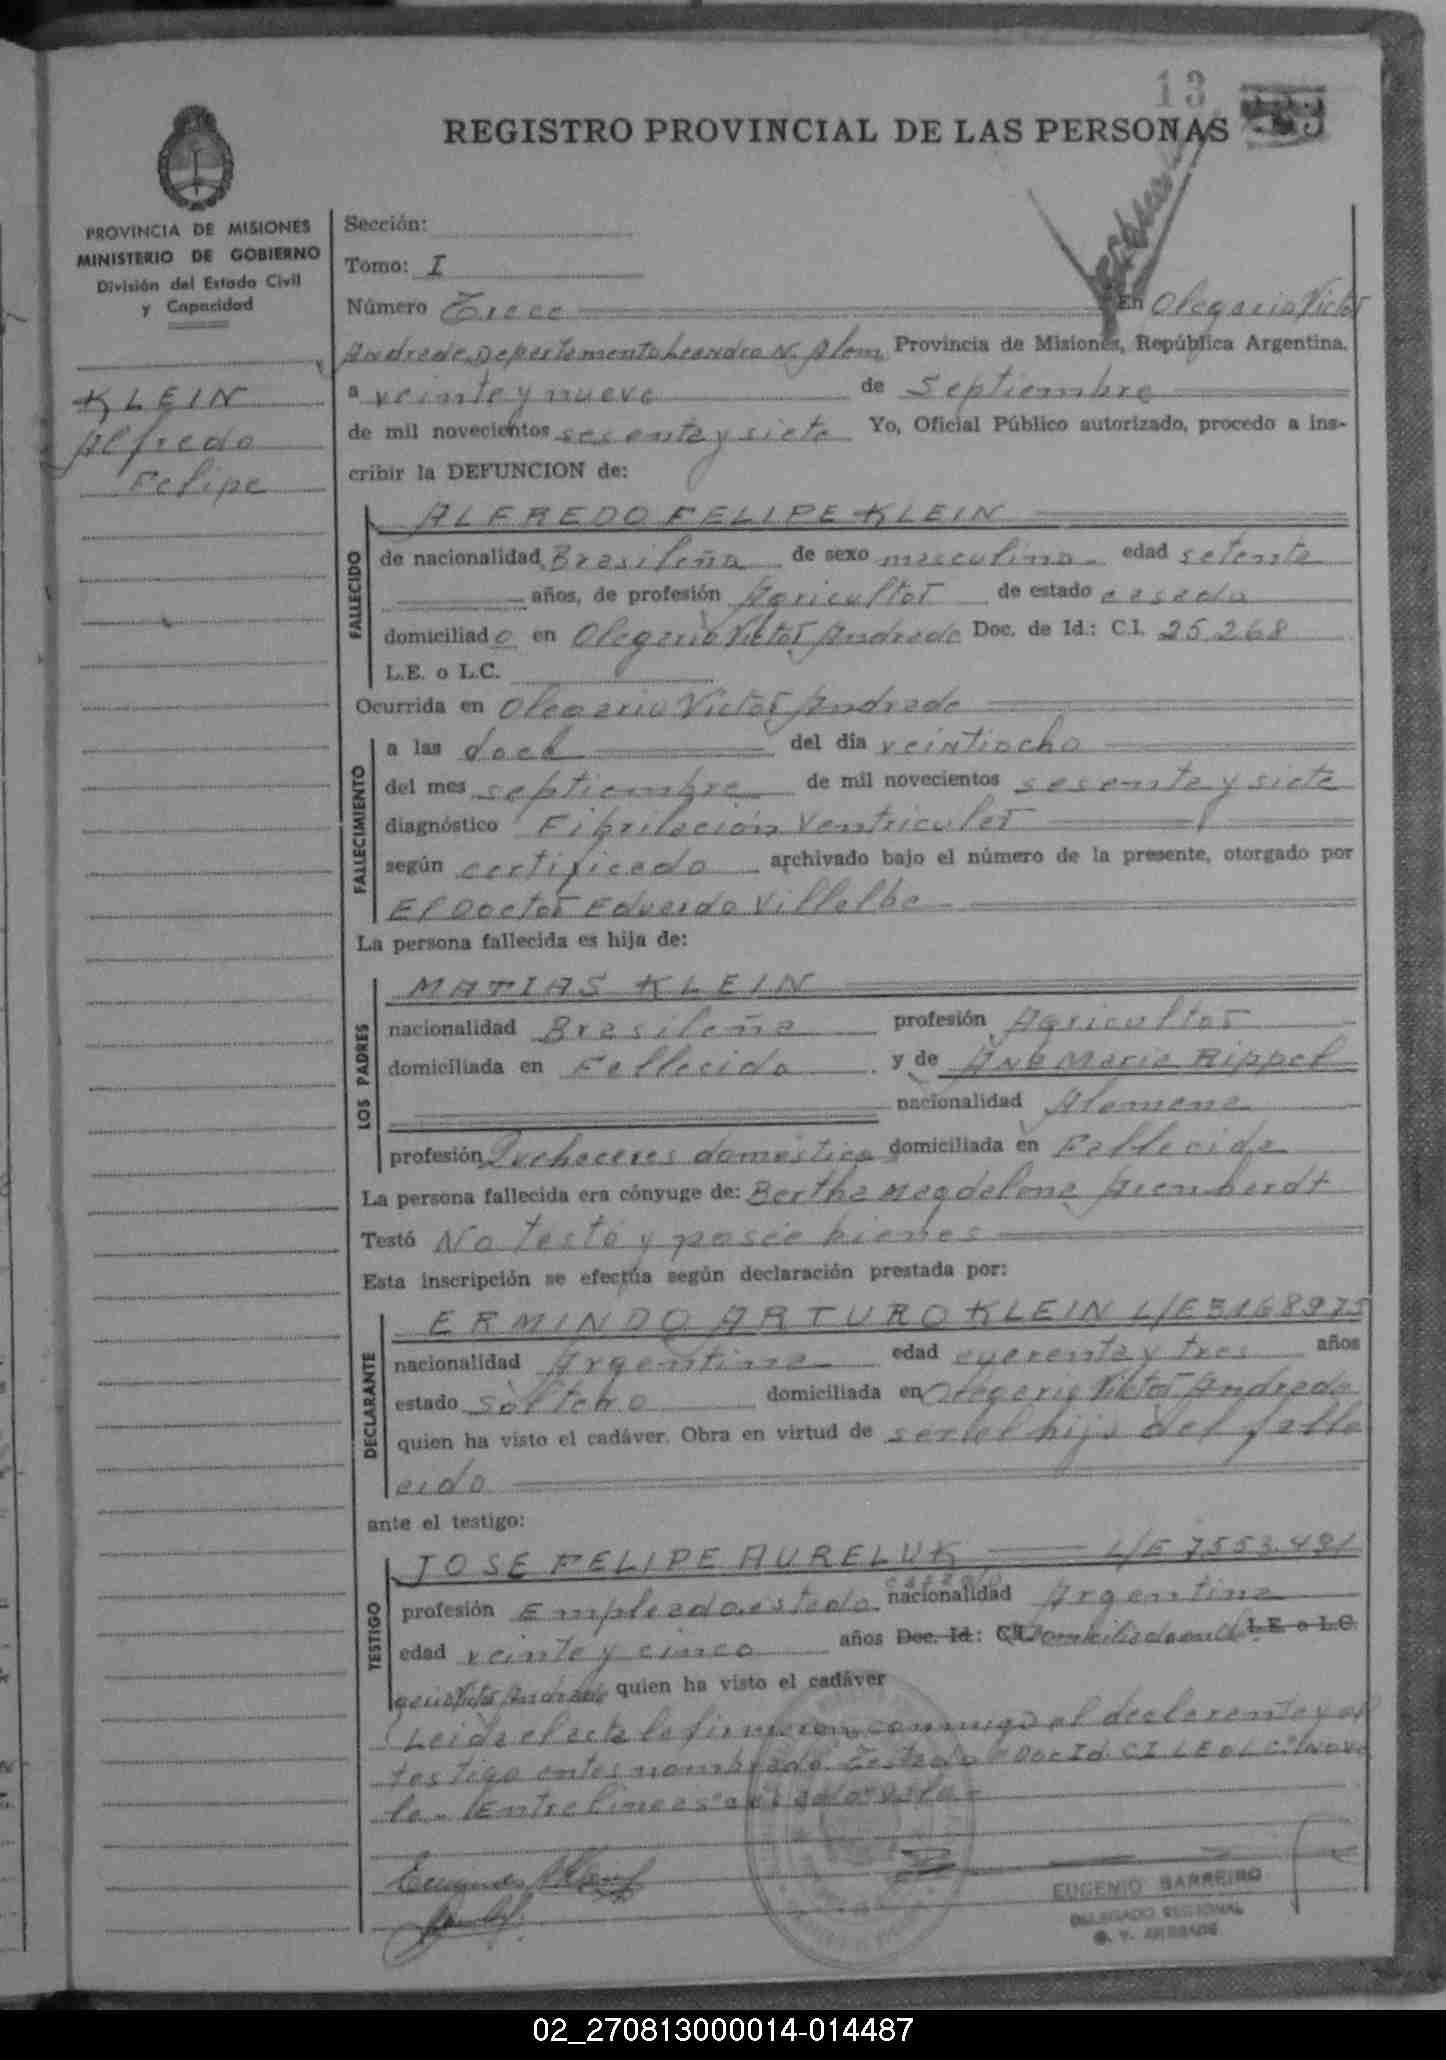 13
REGISTRO PROVINCIAL DE LAS PERSONAS
PROVINCIA DE MISIONES
MINISTERIO DE GOBIERNO
División del Estado Civil
y Capacidad
KLEIN
Alfredo
Felipe
Sección:
Tomo: I
Número Trece En Olegario Victor
Andrade, Departamento Leandro N. Alem Provincia de Misiones, República Argentina,
a veinte y nueve de Septiembre
de mil novecientos sesenta y siete Yo, Oficial Público autorizado, procedo a ins-
cribir la DEFUNCION de:
FALLECIDO
ALFREDO FELIPE KLEIN
de nacionalidad Brasileña de sexo masculino edad setenta
años, de profesión Agricultor de estado casado
domiciliado en Olegario Victor Andrade Doc. de Id.: C.I. 25.268
L.E. o L.C.
Ocurrida en Olegario Victor Andrade
FALLECIMIENTO
a las doce del día veintiocho
del mes septiembre de mil novecientos sesenta y siete
diagnóstico Fibrilación Ventricular
según certificado archivado bajo el número de la presente, otorgado por
El Doctor Eduardo Villalba
La persona fallecida es hija de:
LOS PADRES
MATIAS KLEIN
nacionalidad Brasileña profesión Agricultor
domiciliada en Fallecido y de Ana Maria Rippel
nacionalidad Alemana
profesión Quehaceres domestico domiciliada en Fallecida
La persona fallecida era cónyuge de: Bertha Magdalena
Testó No testó y posée bienes
Esta inscripción se efectúa según declaración prestada por:
DECLARANTE
ERMINDO ARTURO KLEIN L/E 3168975
nacionalidad Argentina edad cuarenta y tres años
estado soltero domiciliada en Olegario Victor Andrade
quien ha visto el cadáver. Obra en virtud de ser el hijo del falle
cido
ante el testigo:
TESTIGO
JOSE FELIPE AURELUK L/E 7553.491
casado
profesión Empleado estado nacionalidad Argentina
edad veinte y cinco años Doc. Id.: C.I. Domiciliado en Ole L.E. o L.C.
gario Victor Andrade quien ha visto el cadáver
Leida el acta la firmaron conmigo el declarante y el
testigo antes nombrado. Testado "Doc Id. C I L E o L C." No va
le. Entrelineas "casado" vale.-
EUGENIO BARREIRO
DELEGADO REGIONAL
O. V. ANDRADE
02_270813000014-014487